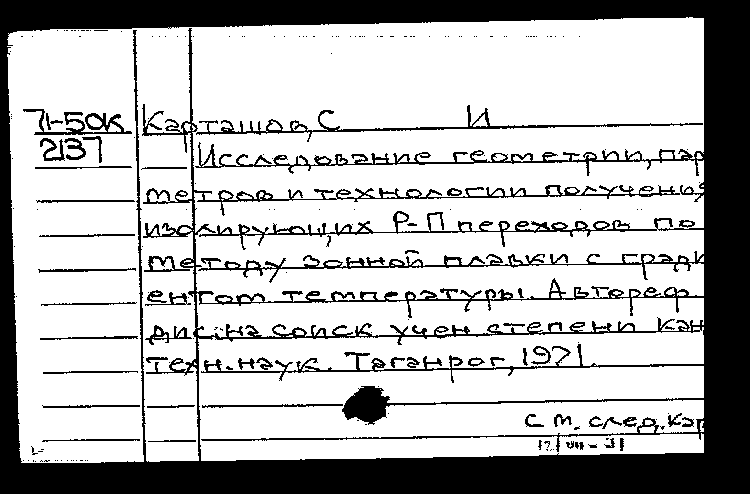 71-50К
2137
Карташов, С И
Исследование геометрии, пар
метров и технологии получения
изолирующих Р-П переходов по
методу зонной плавки с гради
ентом температуры. Автореф.
дис. на соиск учен степени кан
техн. наук. Таганрог, 1971.
см. след. кар